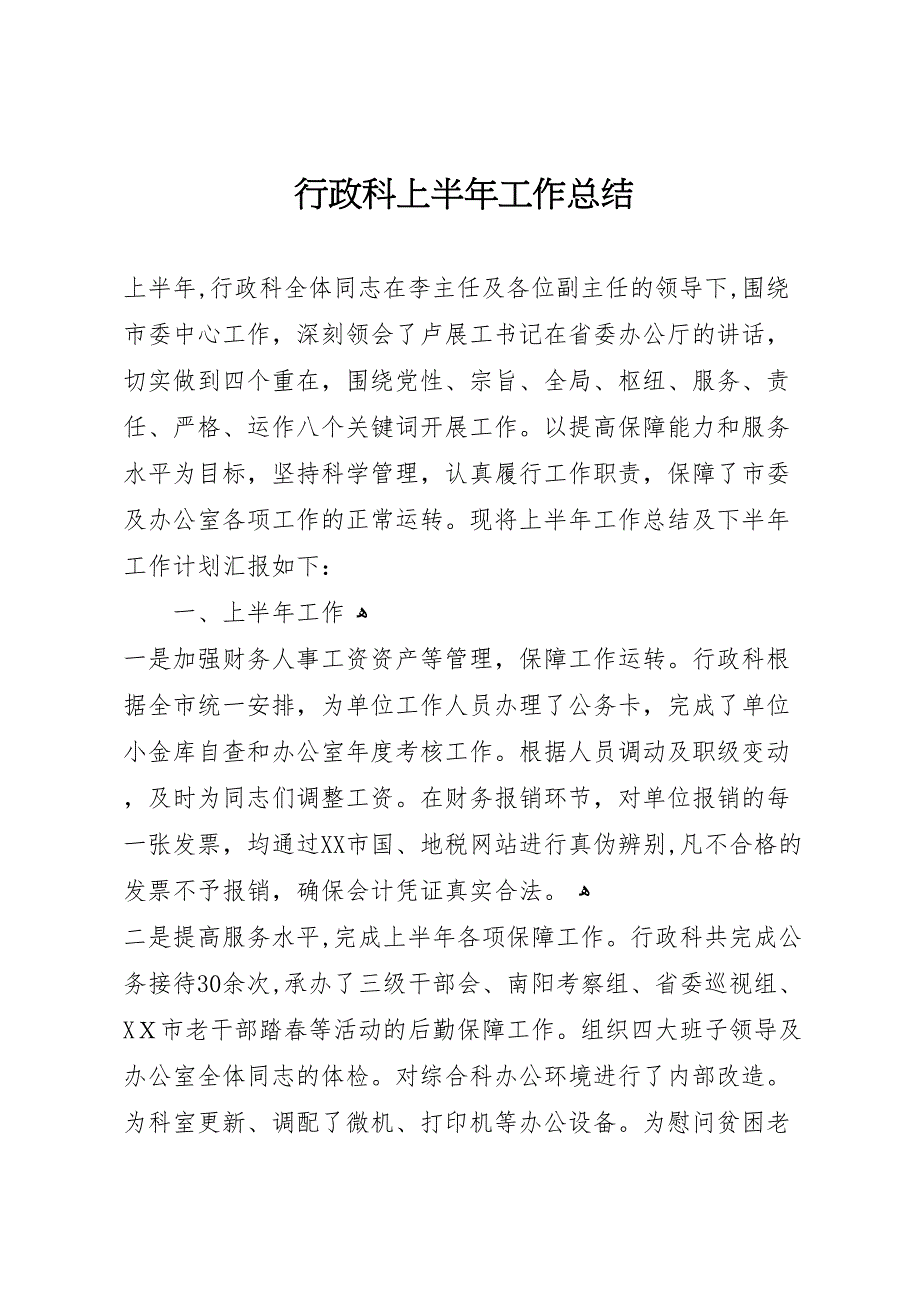 行政科上半年工作总结
上半年,行政科全体同志在李主任及各位副主任的领导下,围绕
市委中心工作，深刻领会了卢展工书记在省委办公厅的讲话，
切实做到四个重在，围绕党性、宗旨、全局、枢纽、服务、责
任、严格、运作八个关键词开展工作。以提高保障能力和服务
水平为目标，坚持科学管理，认真履行工作职责，保障了市委
及办公室各项工作的正常运转。现将上半年工作总结及下半年
工作计划汇报如下：
一、上半年工作 ﻫ
一是加强财务人事工资资产等管理，保障工作运转。行政科根
据全市统一安排，为单位工作人员办理了公务卡，完成了单位
小金库自查和办公室年度考核工作。根据人员调动及职级变动
，及时为同志们调整工资。在财务报销环节，对单位报销的每
一张发票，均通过XX市国、地税网站进行真伪辨别,凡不合格的
发票不予报销，确保会计凭证真实合法。 ﻫ
二是提高服务水平,完成上半年各项保障工作。行政科共完成公
务接待30余次,承办了三级干部会、南阳考察组、省委巡视组、
XX市老干部踏春等活动的后勤保障工作。组织四大班子领导及
办公室全体同志的体检。对综合科办公环境进行了内部改造。
为科室更新、调配了微机、打印机等办公设备。为慰问贫困老